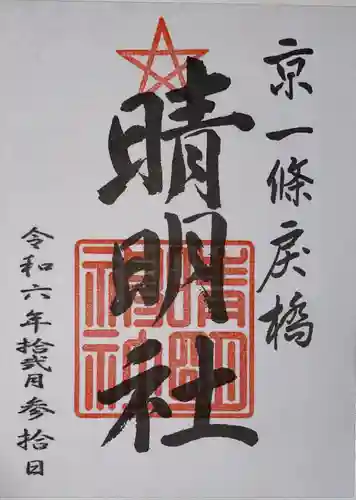 京一條戻橋
晴明社
晴明
神社
令和六年拾弐月参拾日